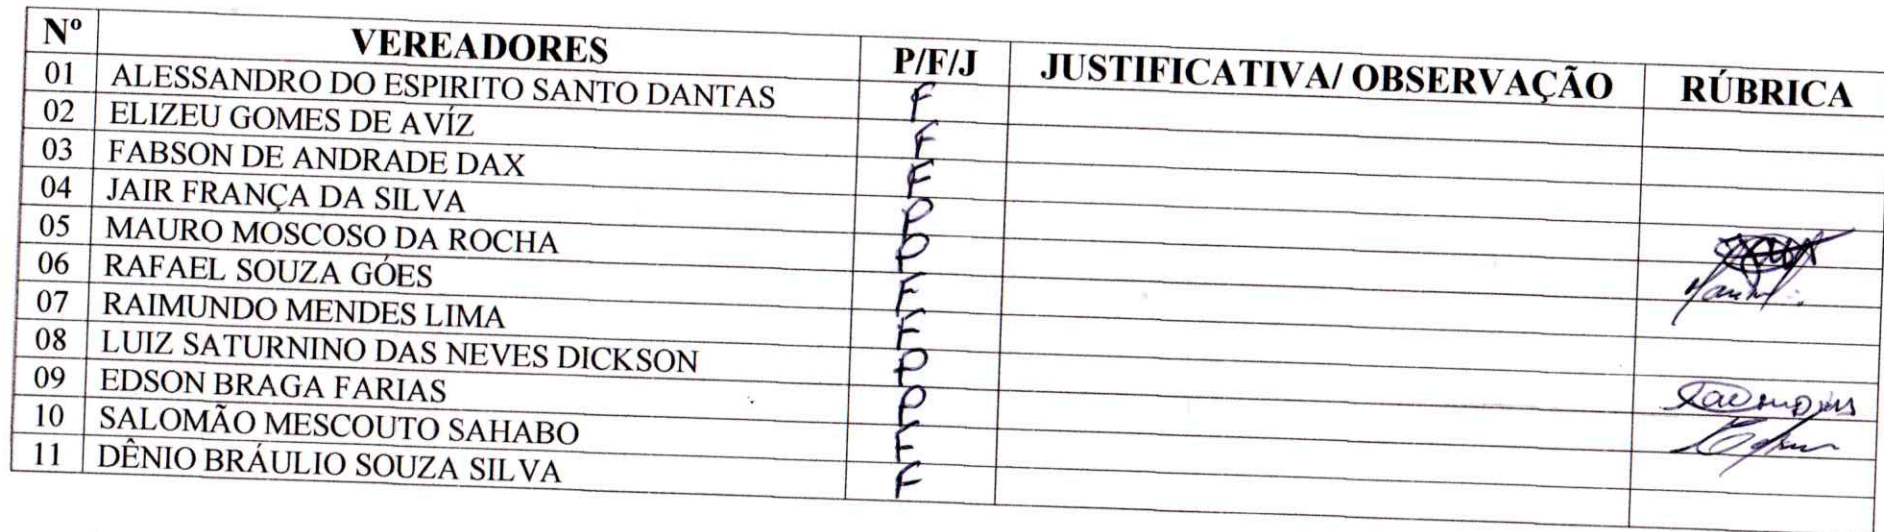 Nº VEREADORES P/F/J JUSTIFICATIVA/ OBSERVAÇÃO RÚBRICA
01 ALESSANDRO DO ESPIRITO SANTO DANTAS F
02 ELIZEU GOMES DE AVÍZ F
03 FABSON DE ANDRADE DAX F
04 JAIR FRANÇA DA SILVA P
05 MAURO MOSCOSO DA ROCHA P
06 RAFAEL SOUZA GÓES F
07 RAIMUNDO MENDES LIMA F
08 LUIZ SATURNINO DAS NEVES DICKSON P
09 EDSON BRAGA FARIAS P
10 SALOMÃO MESCOUTO SAHABO F
11 DÊNIO BRÁULIO SOUZA SILVA F